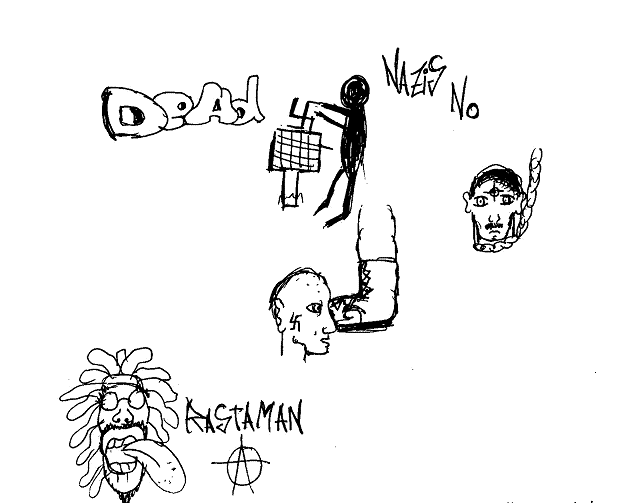 DEAd
NAZiS
No
RASTAMAN
A